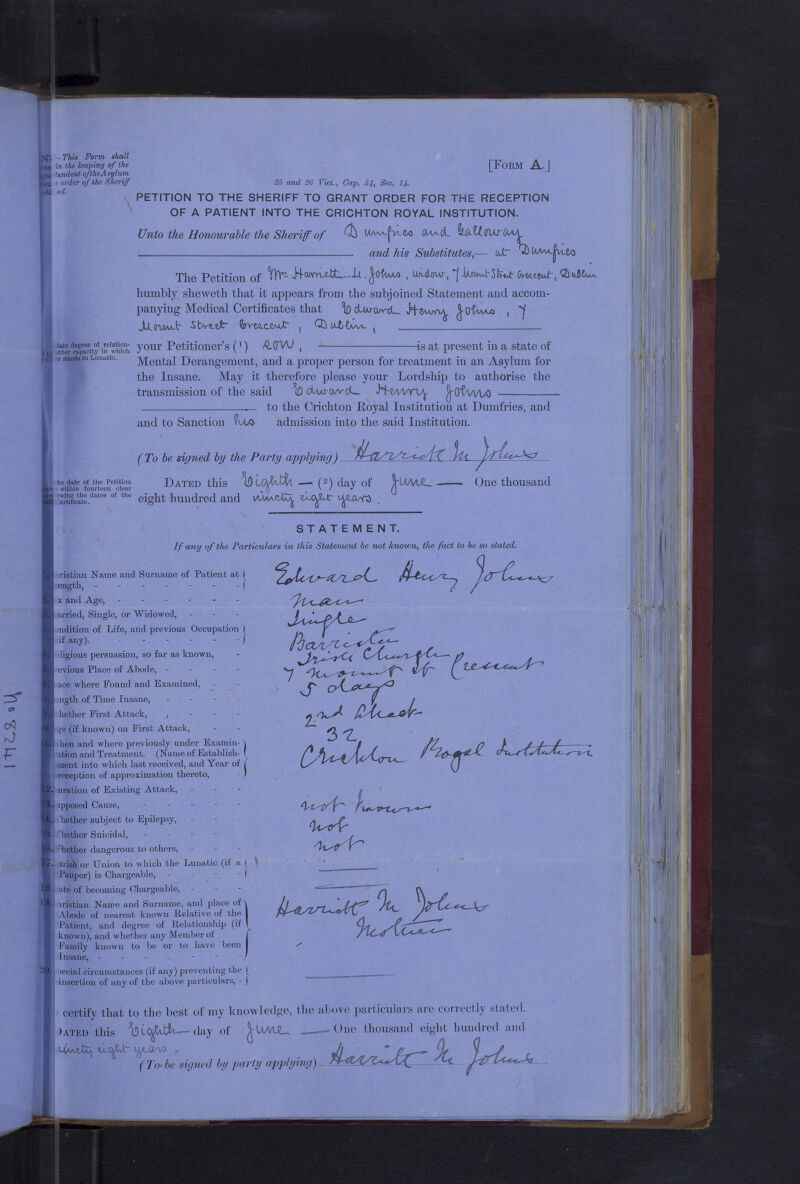 —This Form shall
in the keeping of the
tendent of the Asylum
order of the Sheriff
ed.
[FORM A.]
25 and 26 Vict., Cap. 54, Sec. 14.
PETITION TO THE SHERIFF TO GRANT ORDER FOR THE RECEPTION
OF A PATIENT INTO THE CRICHTON ROYAL INSTITUTION.
Unto the Honourable the Sheriff of Dumfries and Galloway
and his Substitutes,— at Dumfries
The Petition of Mrs Harriett M. Johns, widow, 7 Mount Street Crescent, Dublin
humbly sheweth that it appears from the subjoined Statement and accom-
panying Medical Certificates that Edward Henry Johns, 7
Mount Street Crescent, Dublin,
tate degree of relation-
other capacity in which
r stands to Lunatic.
your Petitioner's (1) son, is at present in a state of
Mental Derangement, and a proper person for treatment in an Asylum for
the Insane. May it therefore please your Lordship to authorise the
transmission of the said Edward Henry Johns
to the Crichton Royal Institution at Dumfries, and
and to Sanction his admission into the said Institution.
(To be signed by the Party applying) Harriett M Johns
he date of the Petition
within fourteen clear
owing the dates of the
Certificate.
DATED this Eighth — (2) day of June — One thousand
eight hundred and ninety eight years.
STATEMENT.
If any of the Particulars in this Statement be not known, the fact to be so stated.
ristian Name and Surname of Patient at
length, - Edward Henry Johns
x and Age, - man
arried, Single, or Widowed, - Single
ndition of Life, and previous Occupation
if any). - Barrister
eligious persuasion, so far as known, - Irish Church
evious Place of Abode, - 7 Mount St Crescent
ace where Found and Examined, -
ngth of Time Insane, - 5 days
hether First Attack, - 2nd Attack
ge (if known) on First Attack, - 32
hen and where previously under Examin-
ation and Treatment. (Name of Establish-
ment into which last received, and Year of
reception of approximation thereto, Crichton Royal Institution
12. uration of Existing Attack, -
13. upposed Cause, - not known
14. hether subject to Epilepsy, - not
15. hether Suicidal, - not
16. hether dangerous to others, -
17. arish or Union to which the Lunatic (if a
Pauper) is Chargeable, -
18. ate of becoming Chargeable, -
19. ristian Name and Surname, and place of
Abode of nearest known Relative of the
Patient, and degree of Relationship (if
known), and whether any Member of
Family known to be or to have been
Insane, - Harriett M Johns
Mother
20. pecial circumstances (if any) preventing the
insertion of any of the above particulars, -
certify that to the best of my knowledge, the above particulars are correctly stated.
DATED this Eighth — day of June — One thousand eight hundred and
ninety eight years.
(To be signed by party applying) Harriett M Johns
No 8241